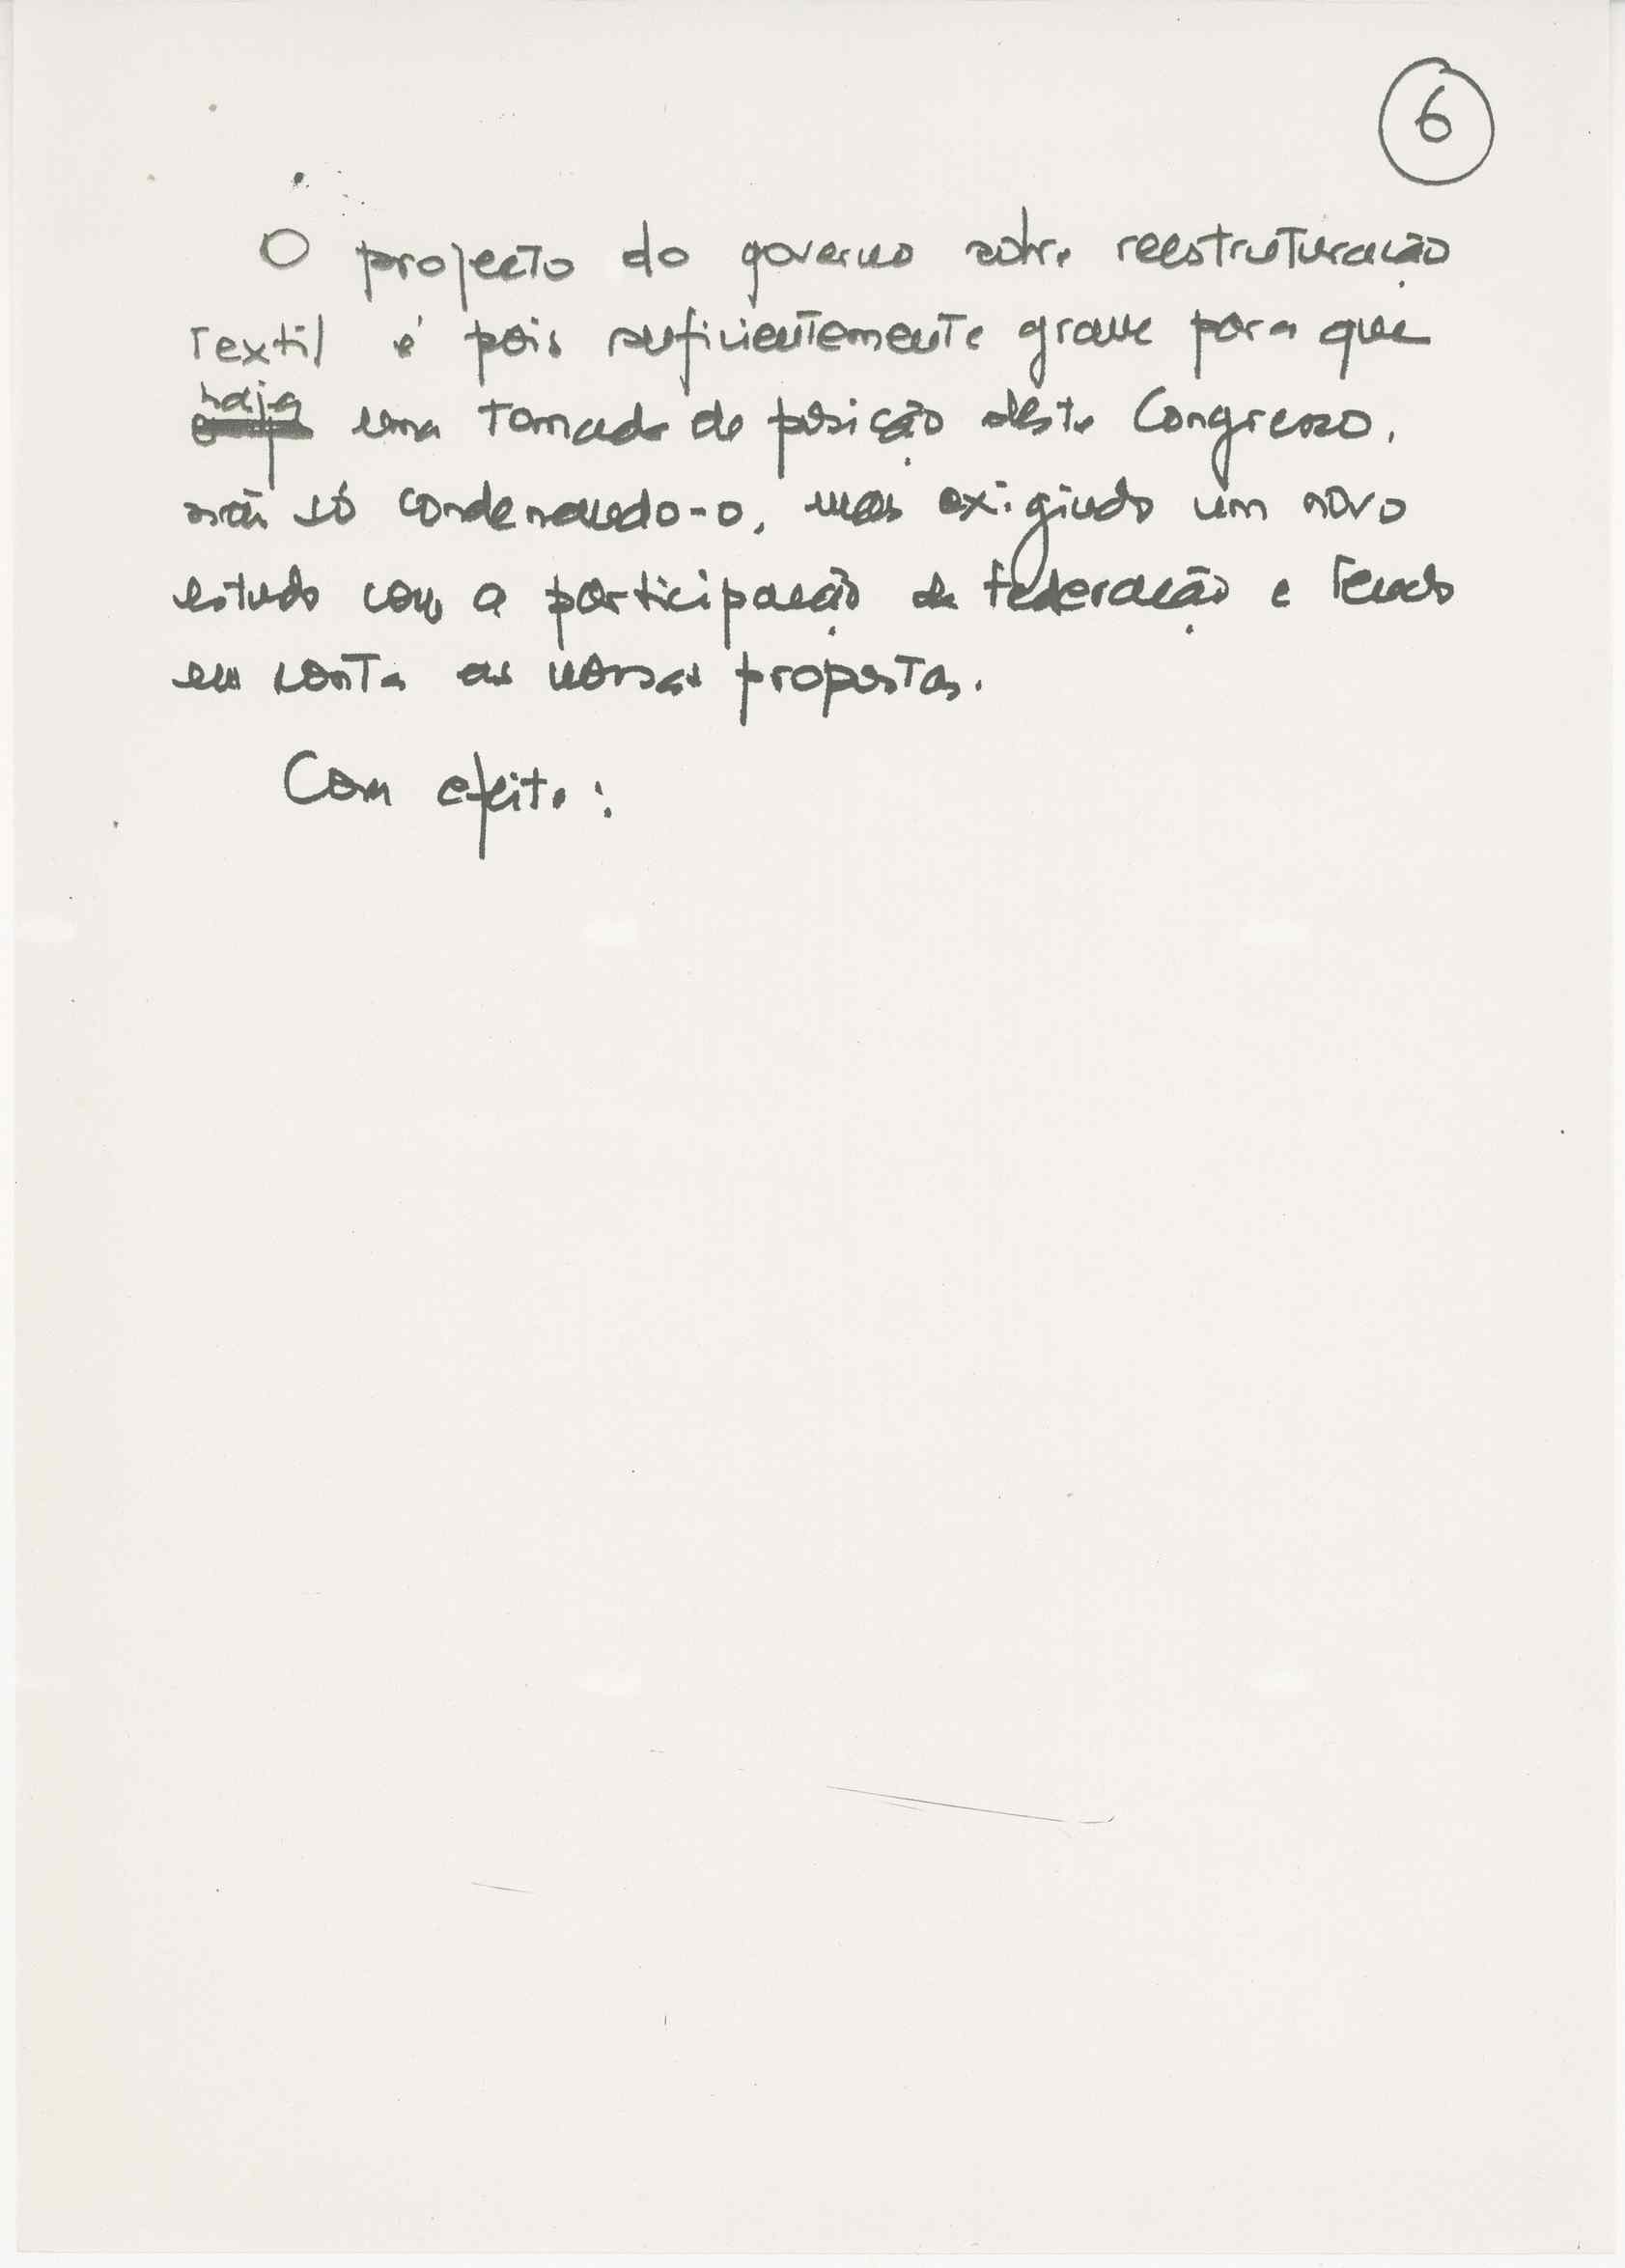 6
O projecto do governo sobre reestruturação
textil é pois suficientemente grave para que
haja uma tomada de posição deste Congresso,
não só condenando-o, mas exigindo um novo
estudo com a participação da federação e tendo
em conta as nossas propostas.
Com efeito: